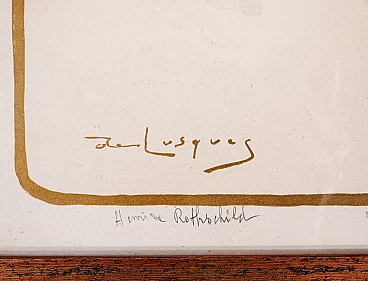 de Losques
Henri de Rothschild